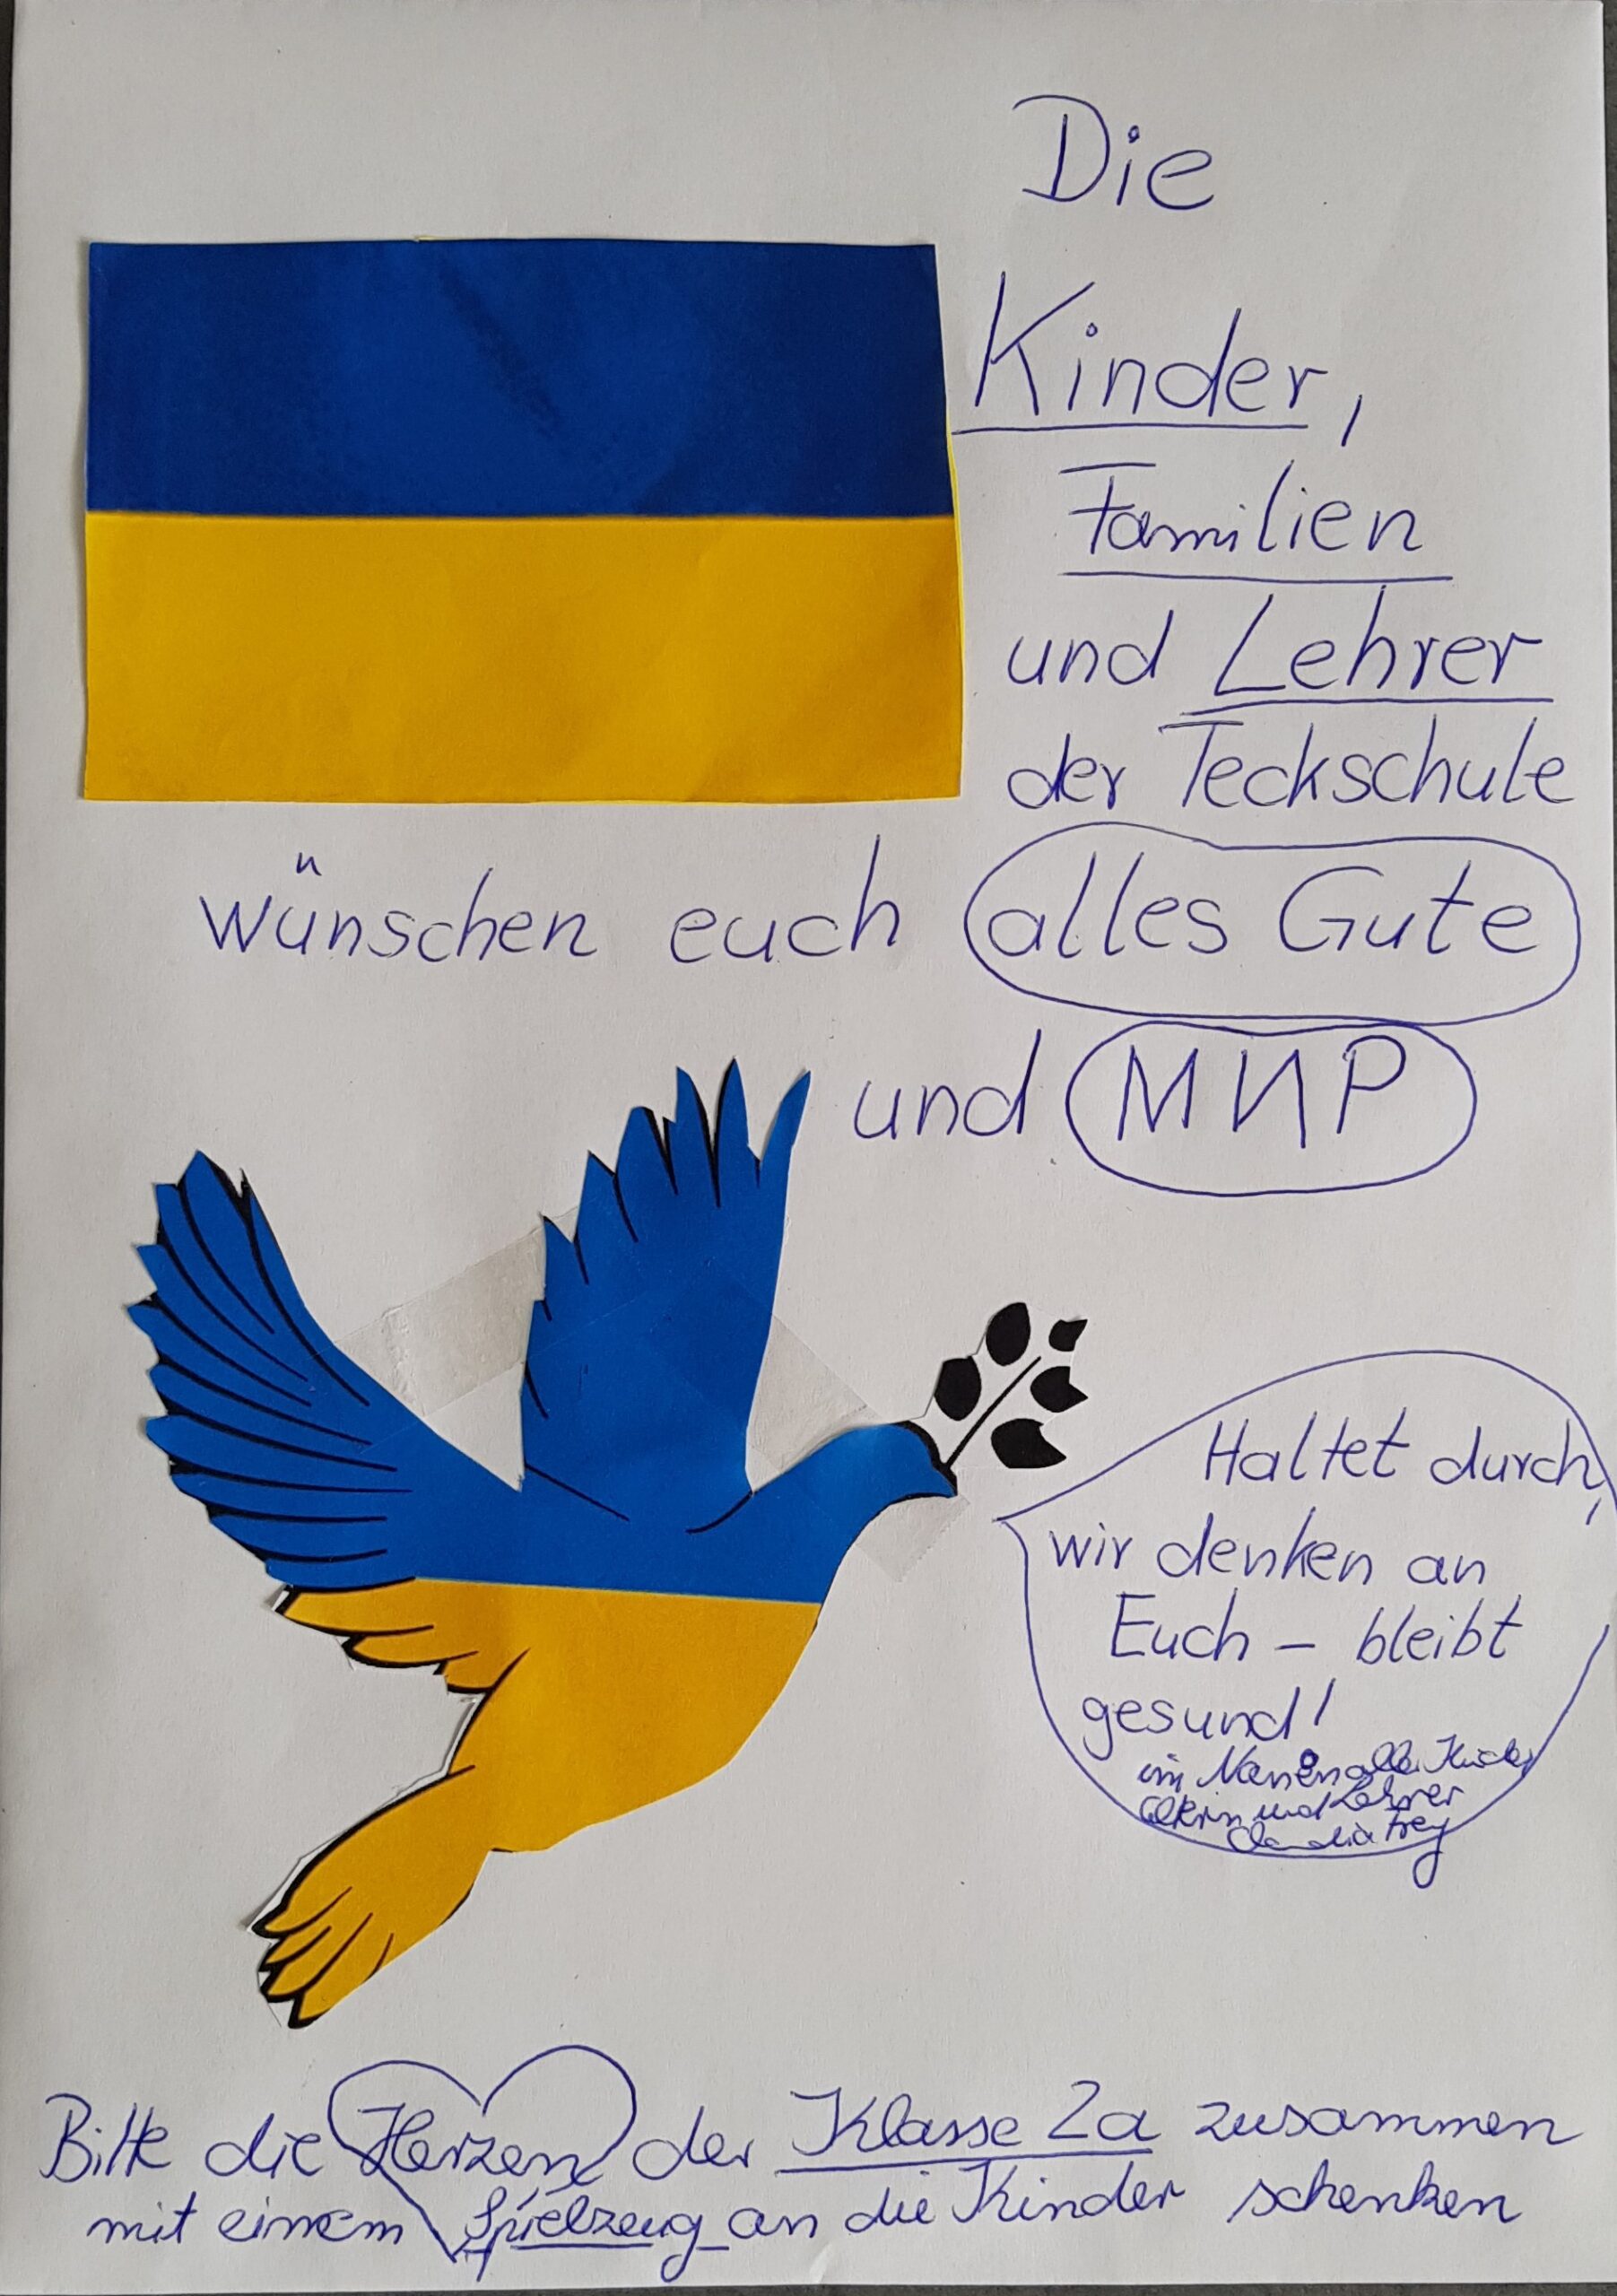 Die
Kinder,
Familien
und Lehrer
der Teckschule
wünschen euch alles Gute
und МИР
Haltet durch,
wir denken an
Euch – bleibt
gesund!
im Namen aller Kinder,
Eltern und Lehrer
Claudia Frey
Bitte die Herzen der Klasse 2a zusammen
mit einem Spielzeug an die Kinder schenken